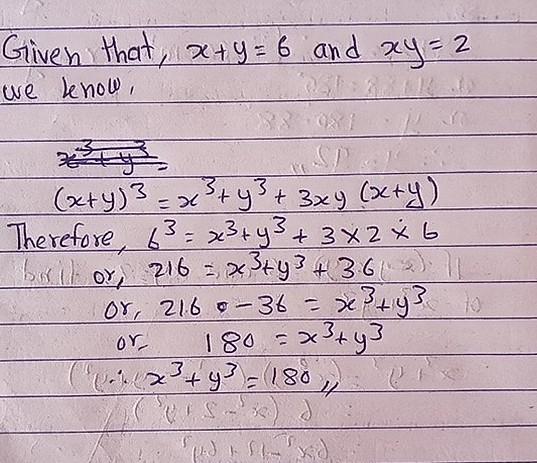 Given that, x+y = 6 and xy = 2
we know,
x³ + y³ =
(x+y)³ = x³ + y³ + 3xy (x+y)
Therefore, 6³ = x³ + y³ + 3 × 2 × 6
or, 216 = x³ + y³ + 36
or, 216 - 36 = x³ + y³
or, 180 = x³ + y³
∴ x³ + y³ = 180,,